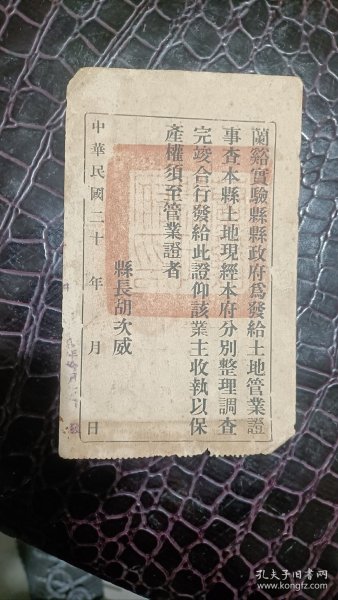 蘭谿實驗縣縣政府爲發給土地管業證
事查本縣土地現經本府分別整理調查
完竣合行發給此證仰該業主收執以保
產權須至管業證者
縣長胡次威
中華民國二十年月日
孔夫子旧书网
www.kongfz.com